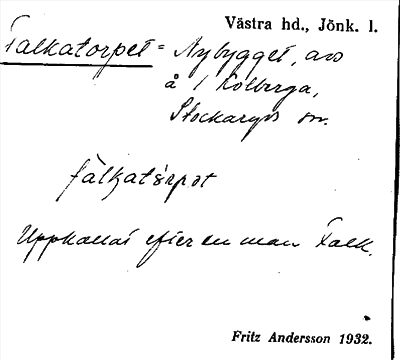 Västra hd., Jönk. l.
Falkatorpet = Nybygget, avs
å 1 Kolberga,
Stockaryds sn.
fàlkatår̀pət
Uppkallat efter en man Falk.
Fritz Andersson 1932.